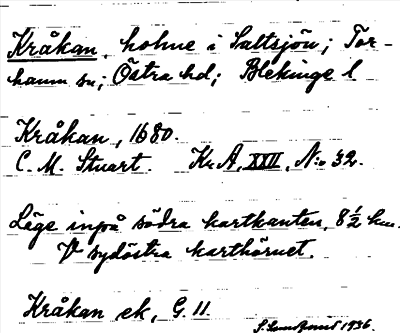 Kråkan, holme i Saltsjön; Tor-
hamn sn; Östra hd; Blekinge l
Kråkan, 1680.
C. M. Stuart. Kr. A, XXII, N:o 32.
Läge inpå södra kartkanten, 8½ km.
V sydöstra karthörnet.
Kråkan ek, G. 11
1936.